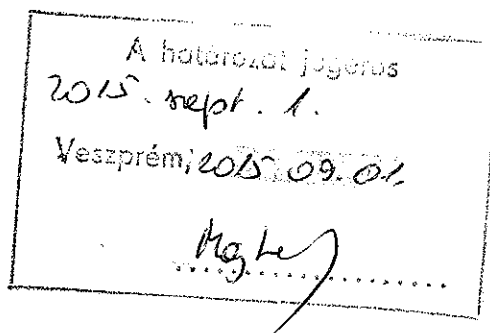 A határozat jogerős
2015. szept. 1.
Veszprém, 2015 09. 01.